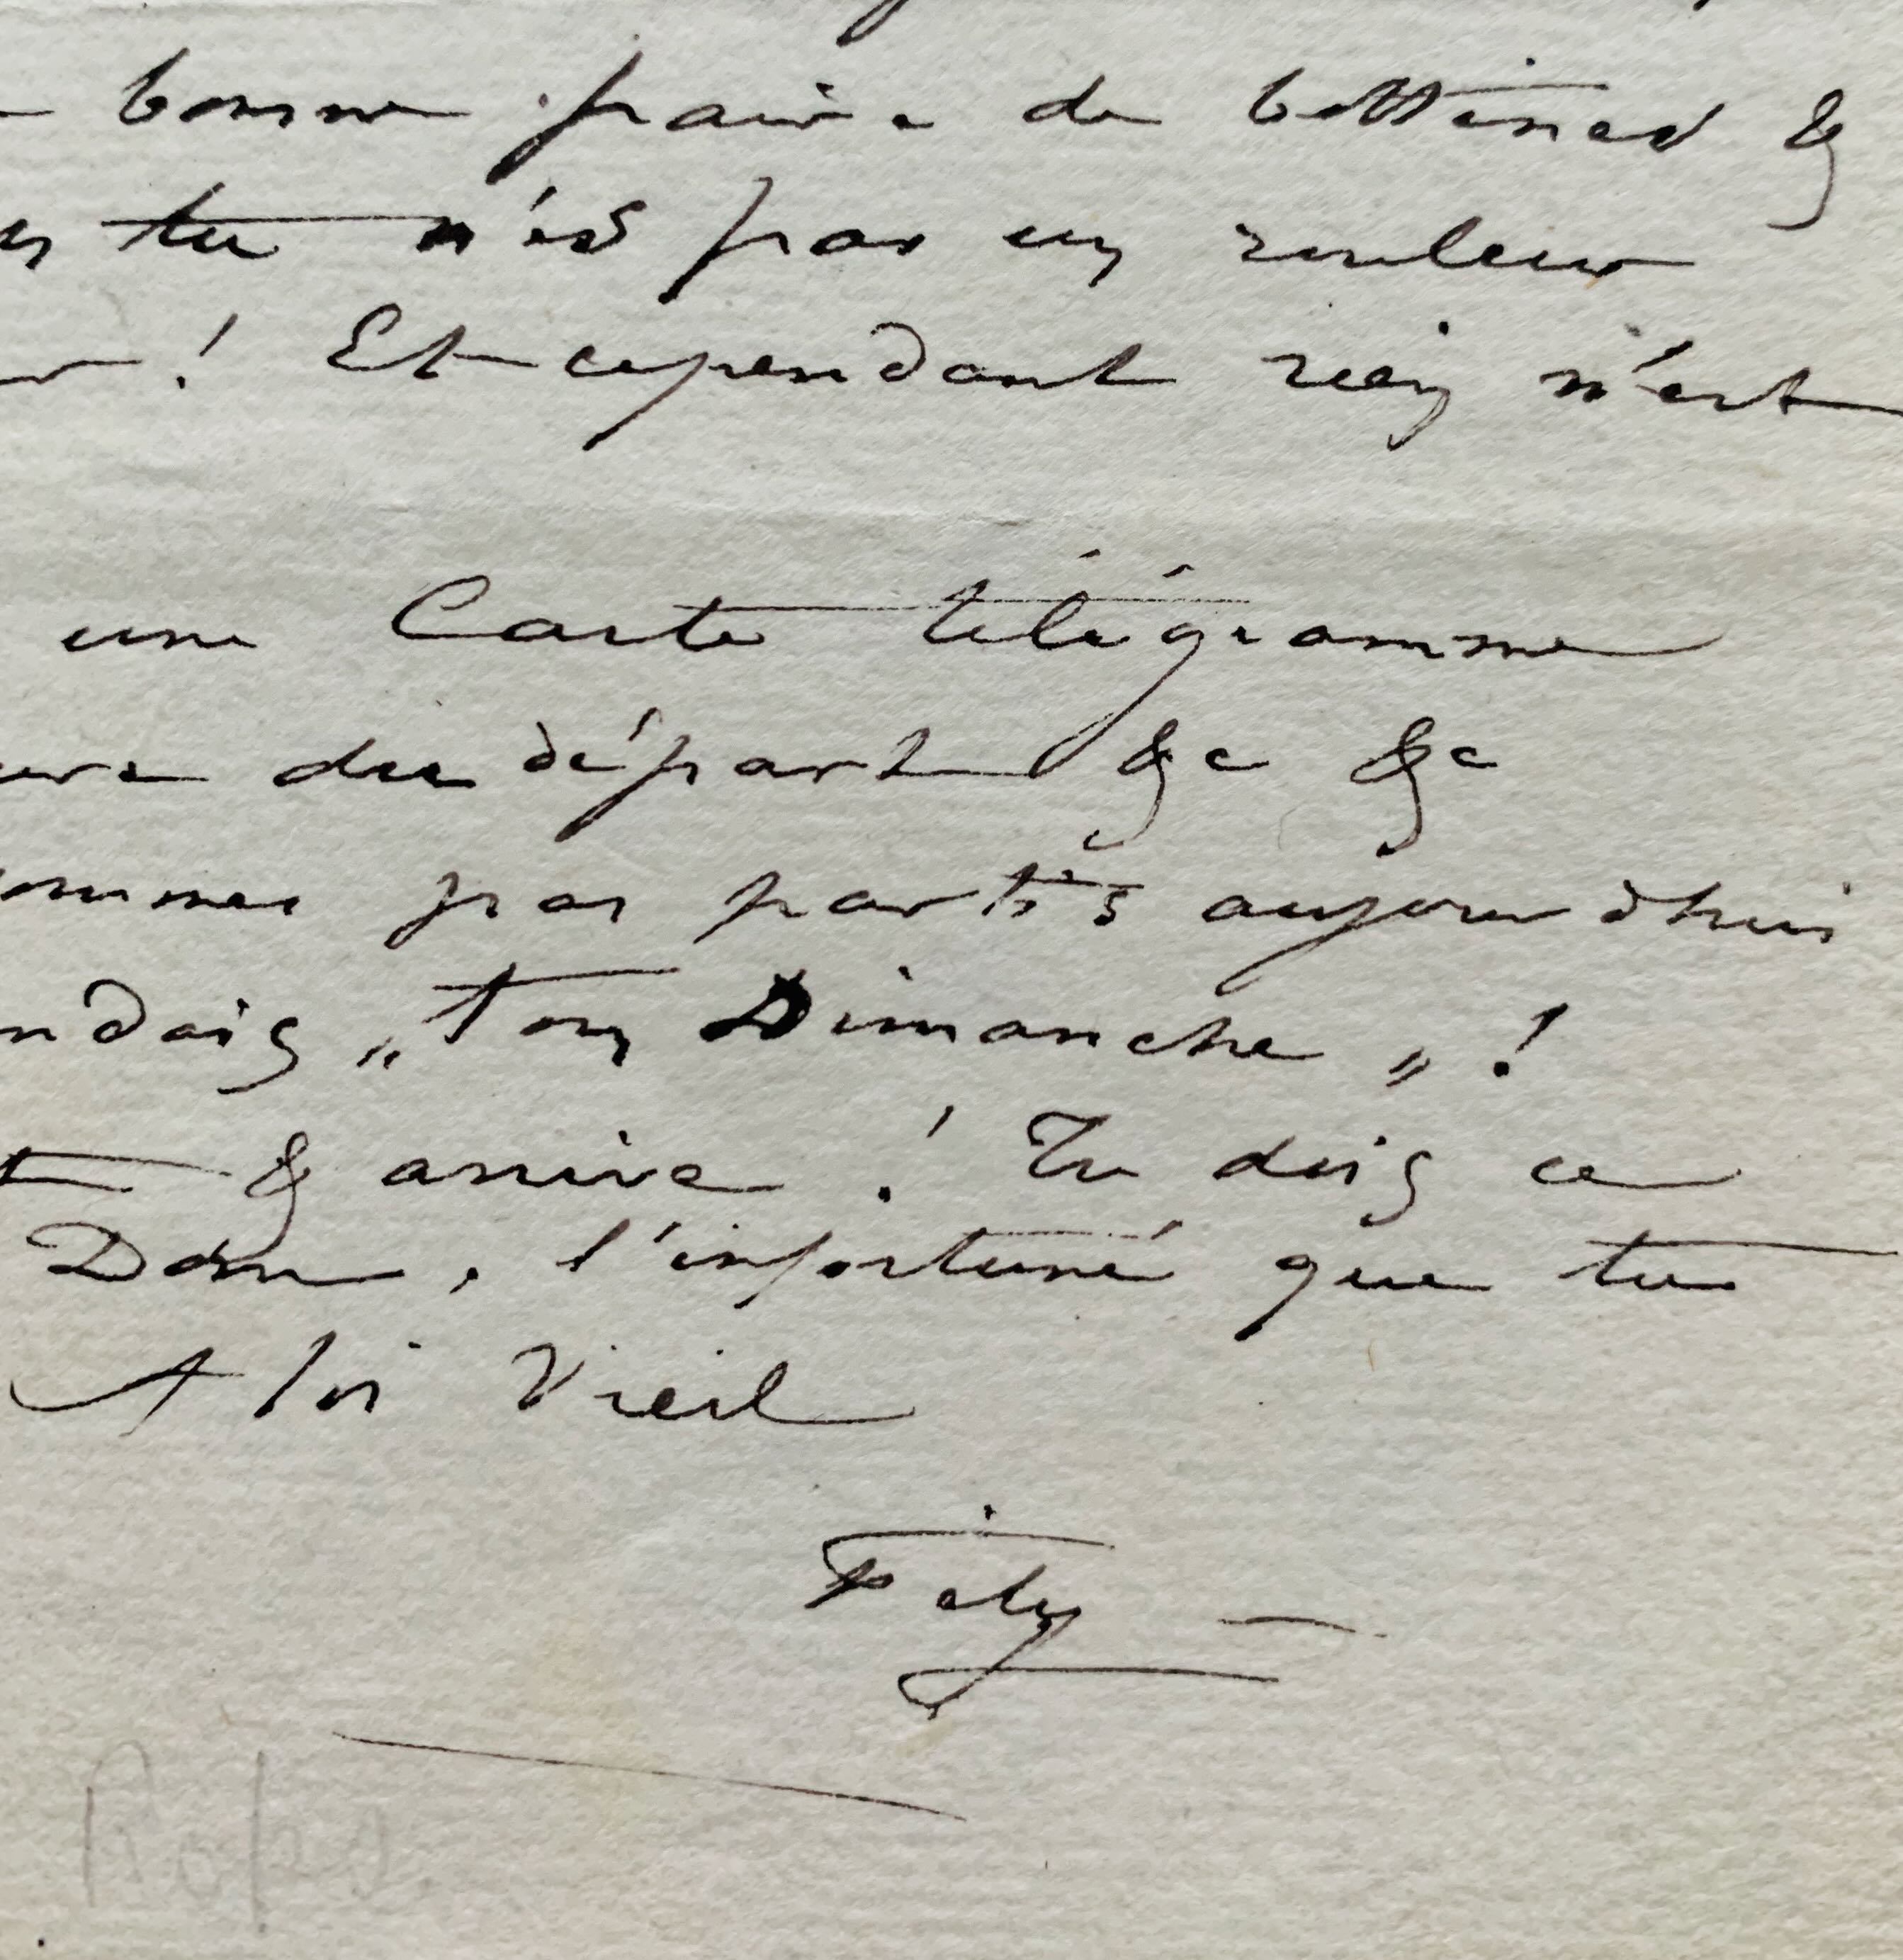 bonne paire de bottines &
tu n'es pas un rouleur
! Et cependant rien n'est
une Carte télégramme
du départ &c &c
pas partis aujourd'hui
ndais „ton Dimanche„ !
& arrive ! Tu dois ce
l'infortuné que tu
A toi Vieil
Fély —
Rops